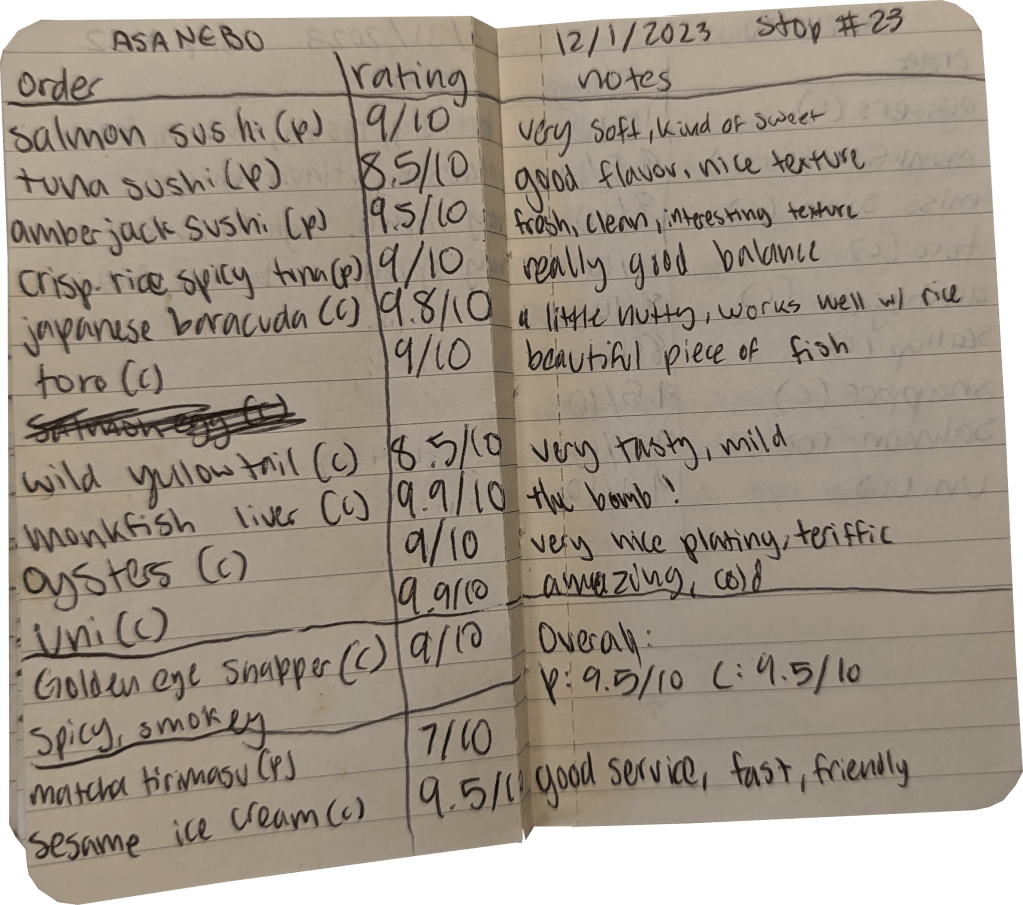 ASANEBO 12/1/2023 Stop #23
order rating notes
salmon sushi (p) 9/10 very soft, kind of sweet
tuna sushi (p) 8.5/10 good flavor, nice texture
amberjack sushi (p) 9.5/10 fresh, clean, interesting texture
crisp. rice spicy tuna (p) 9/10 really good balance
japanese baracuda (c) 9.8/10 a little nutty, works well w/ rice
toro (c) 9/10 beautiful piece of fish
salmon egg (c)
wild yellowtail (c) 8.5/10 very tasty, mild
monkfish liver (c) 9.9/10 the bomb!
oysters (c) 9/10 very nice plating, teriffic
uni (c) 9.9/10 amazing, cold
Golden eye snapper (c) 9/10 Overall:
spicy, smokey p: 9.5/10 C: 9.5/10
matcha tirimasu (p) 7/10
sesame ice cream (c) 9.5/10 good service, fast, friendly